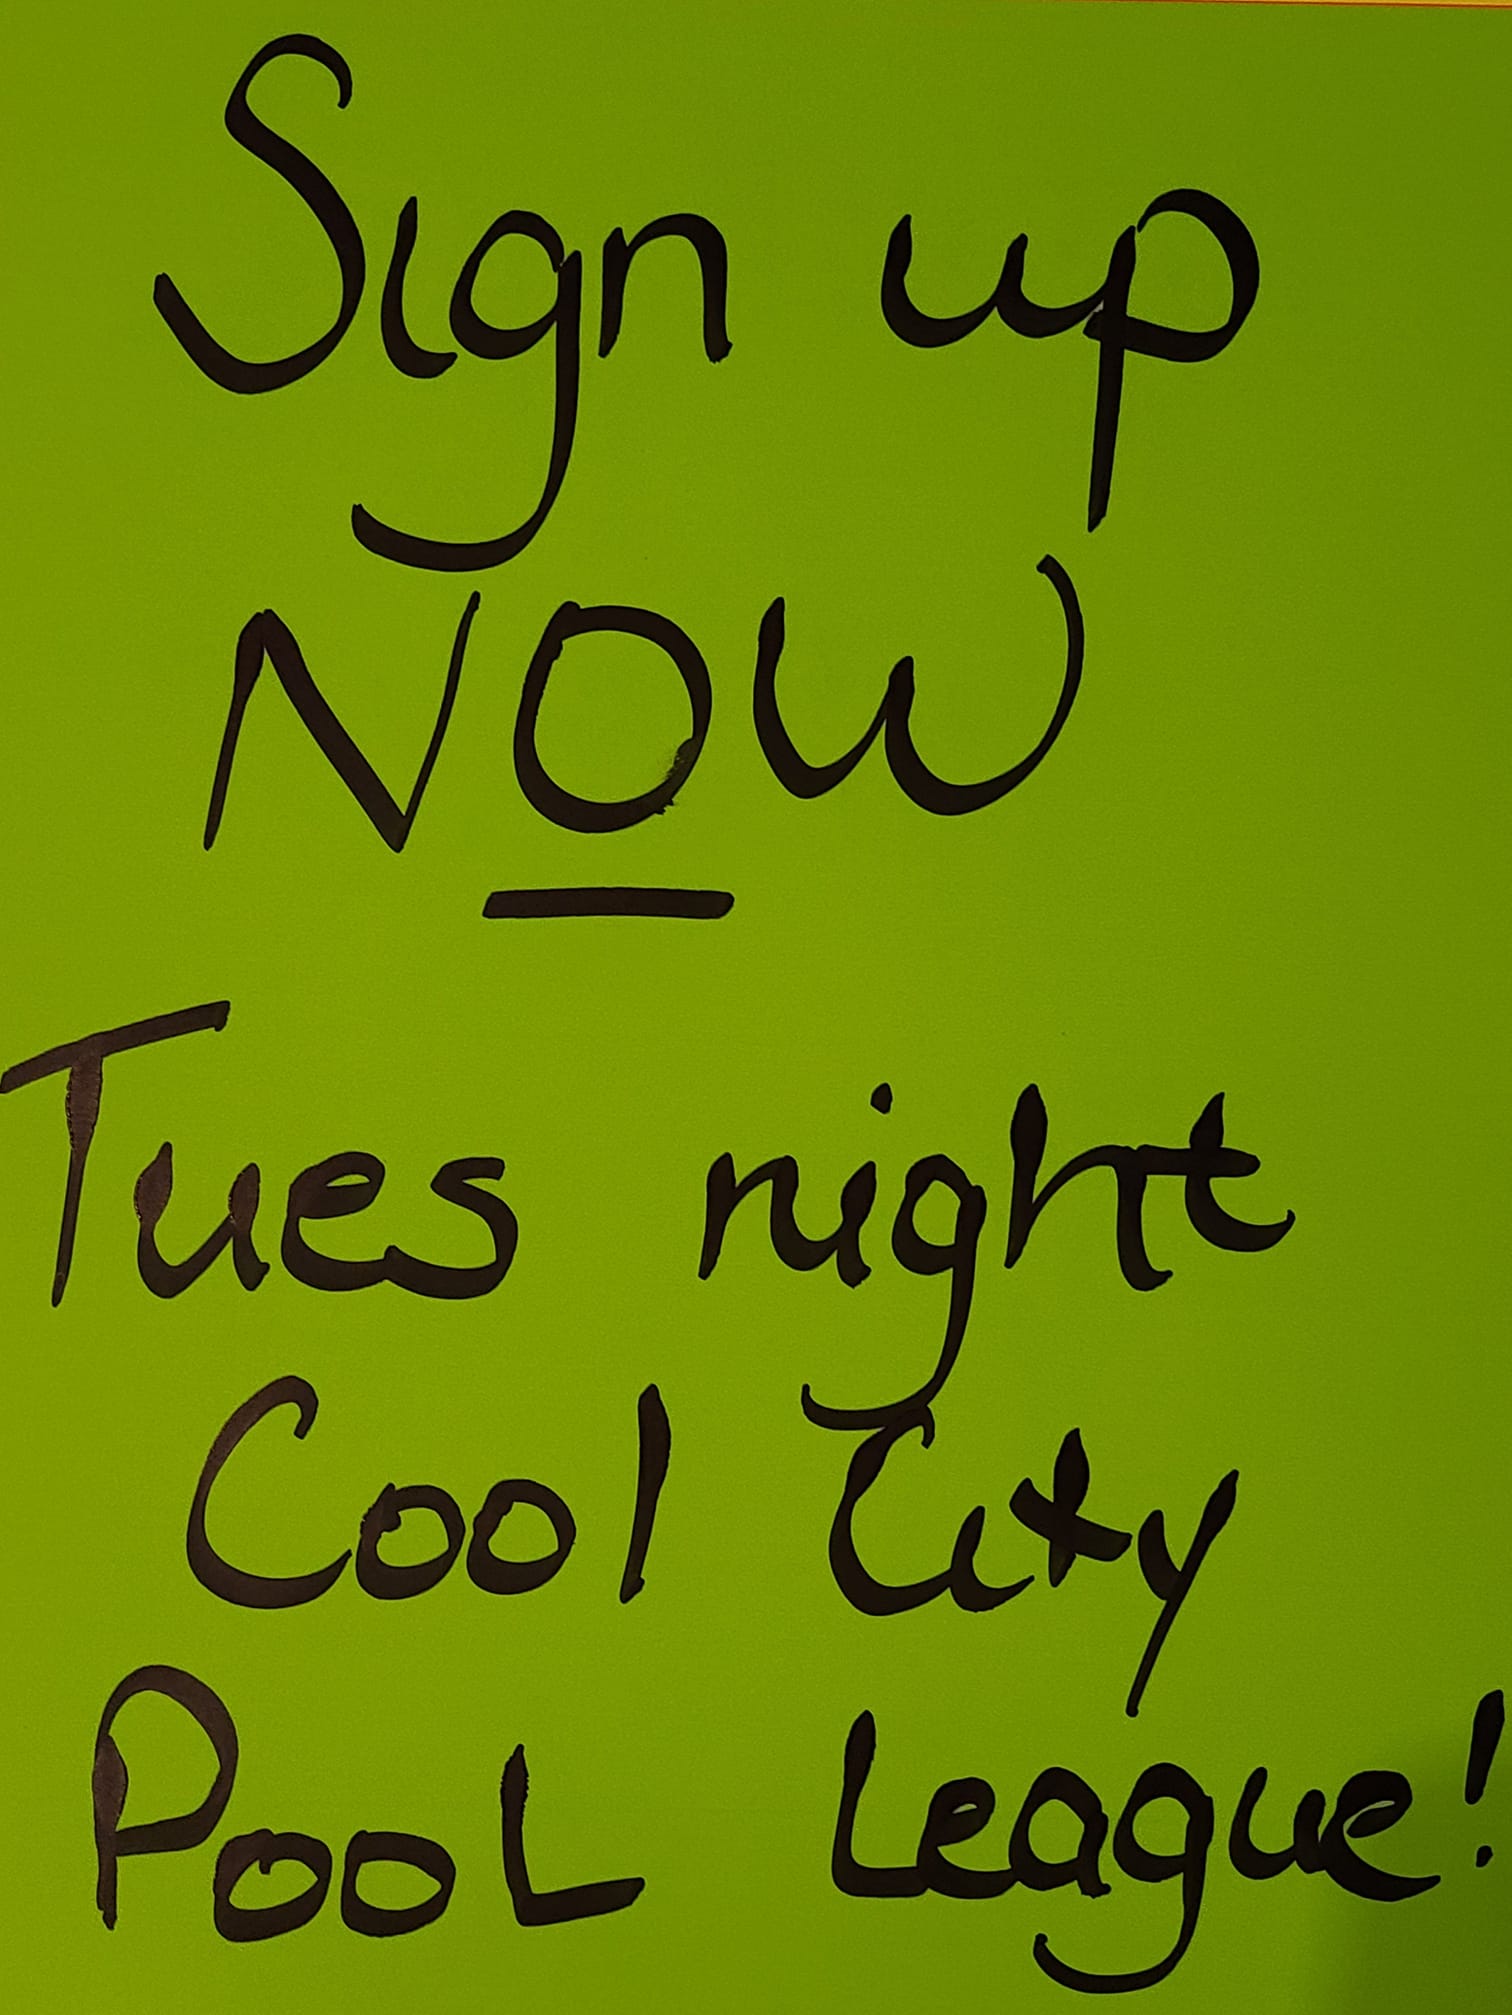 Sign up
NOW
Tues night
Cool City
PooL League!